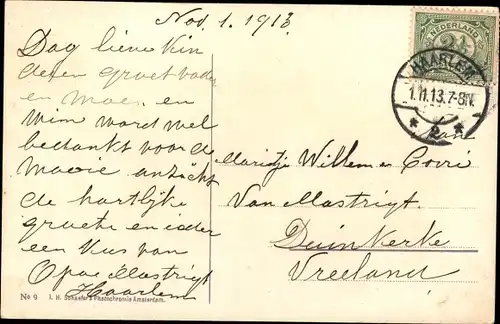 Nov. 1. 1913
Dag lieve kin
deren groet vader
en moe. en
Wim word wel
bedankt voor de
mooie anzicht
de hartlijke
groete en ieder
een kus van
Opa v Mastrigt
Haarlem
NEDERLAND
2½
HAARLEM
1.11.13.7-8N.
2
Aan
Marietje Willem en Corri
Van Mastrigt.
Duinkerke
Vreeland
No 9 I. H. Schaefer's Photochromie Amsterdam.